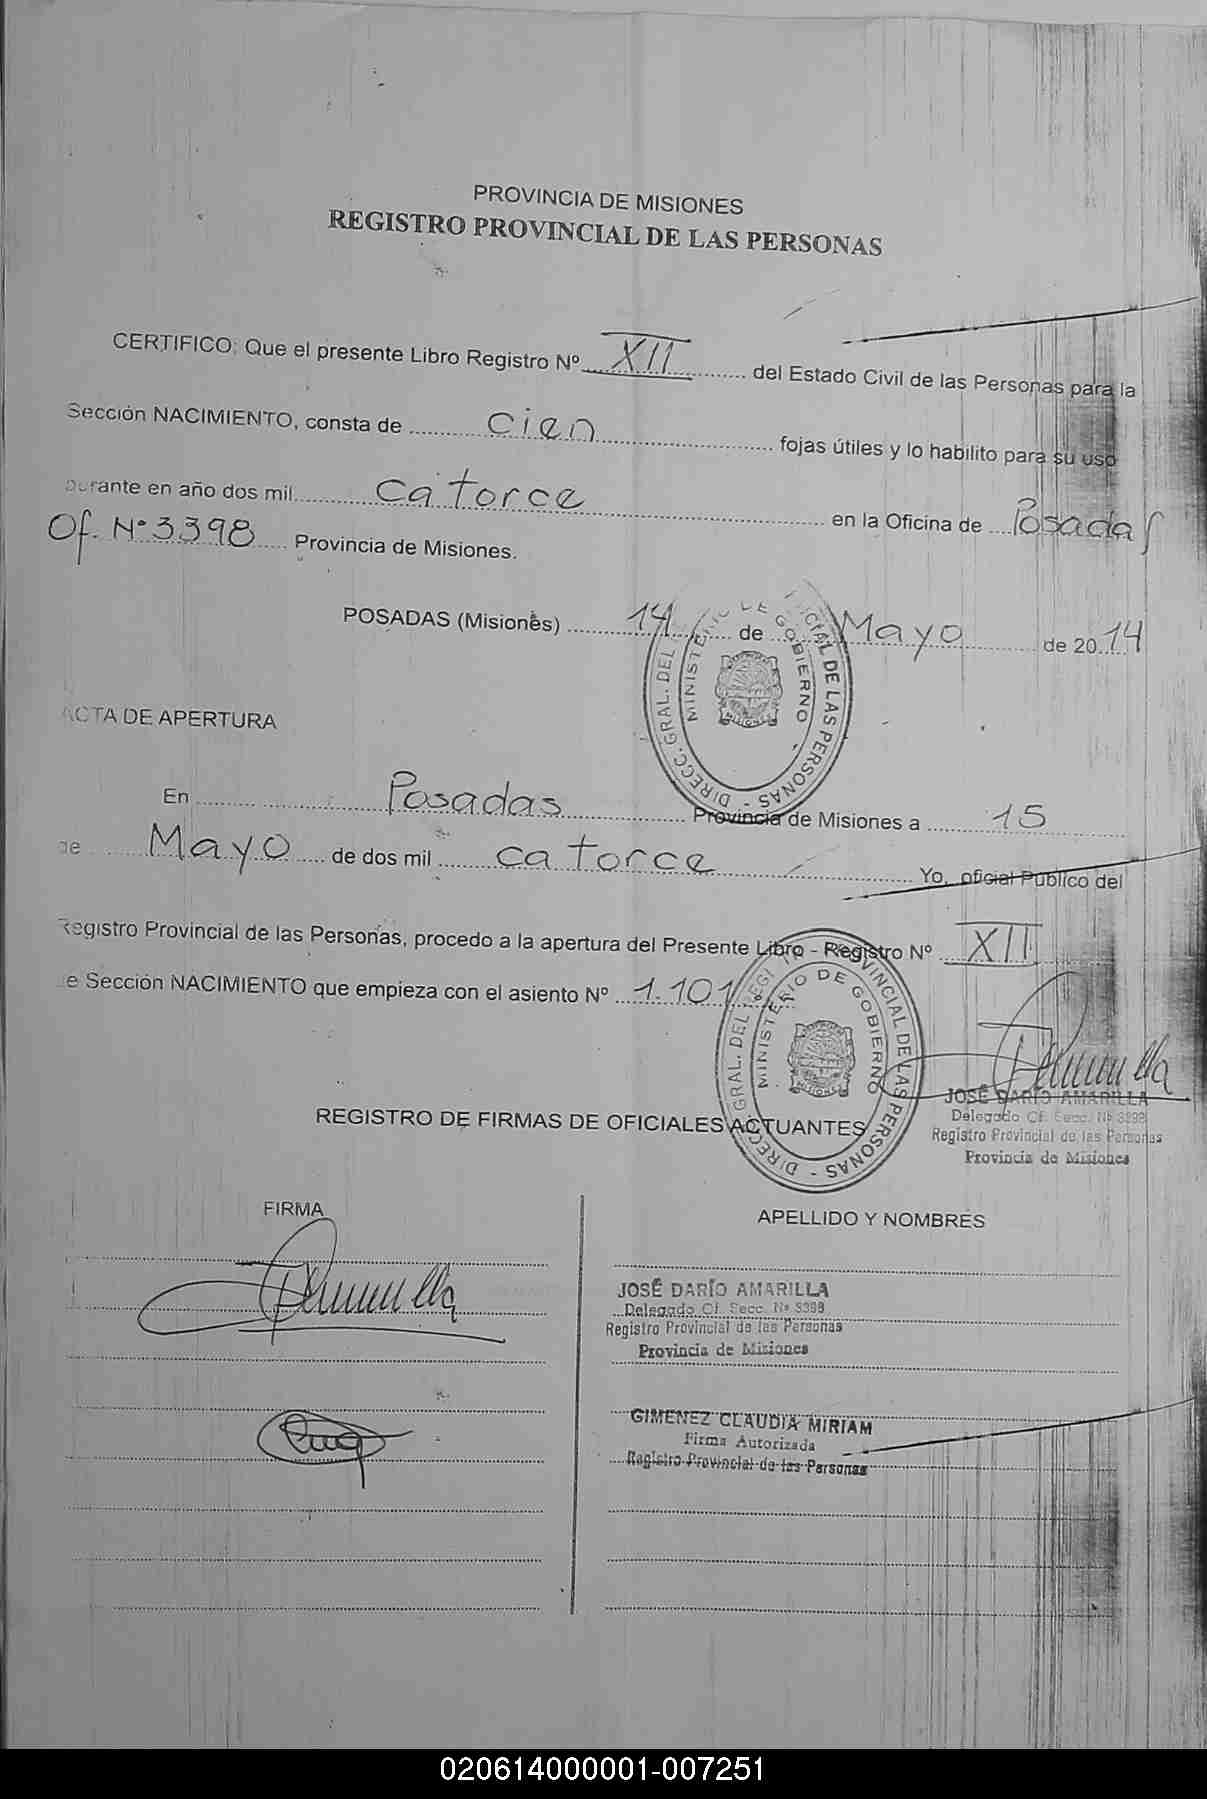 PROVINCIA DE MISIONES
REGISTRO PROVINCIAL DE LAS PERSONAS
CERTIFICO: Que el presente Libro Registro Nº XII del Estado Civil de las Personas para la
Sección NACIMIENTO, consta de cien fojas útiles y lo habilito para su uso
Durante en año dos mil catorce en la Oficina de Posadas
Of. Nº 3398 Provincia de Misiones.
POSADAS (Misiones) 14 de Mayo de 2014
DIRECC. GRAL. DEL DE LAS PERSONAS
MINISTERIO DE GOBIERNO
MISIONES
ACTA DE APERTURA
En Posadas Provincia de Misiones a 15
de Mayo de dos mil catorce Yo, oficial Público del
Registro Provincial de las Personas, procedo a la apertura del Presente Libro - Registro Nº XII
e Sección NACIMIENTO que empieza con el asiento Nº 1.101
DIRECC. GRAL. DEL REGI PROVINCIAL DE LAS PERSONAS
MINISTERIO DE GOBIERNO
MISIONES
JOSÉ DARÍO AMARILLA
Delegado Cf. Secc. Nº 3398
Registro Provincial de las Personas
Provincia de Misiones
REGISTRO DE FIRMAS DE OFICIALES ACTUANTES
FIRMA APELLIDO Y NOMBRES
JOSÉ DARÍO AMARILLA
Delegado Cf. Secc. Nº 3398
Registro Provincial de las Personas
Provincia de Misiones
GIMENEZ CLAUDIA MIRIAM
Firma Autorizada
Registro Provincial de las Personas
020614000001-007251